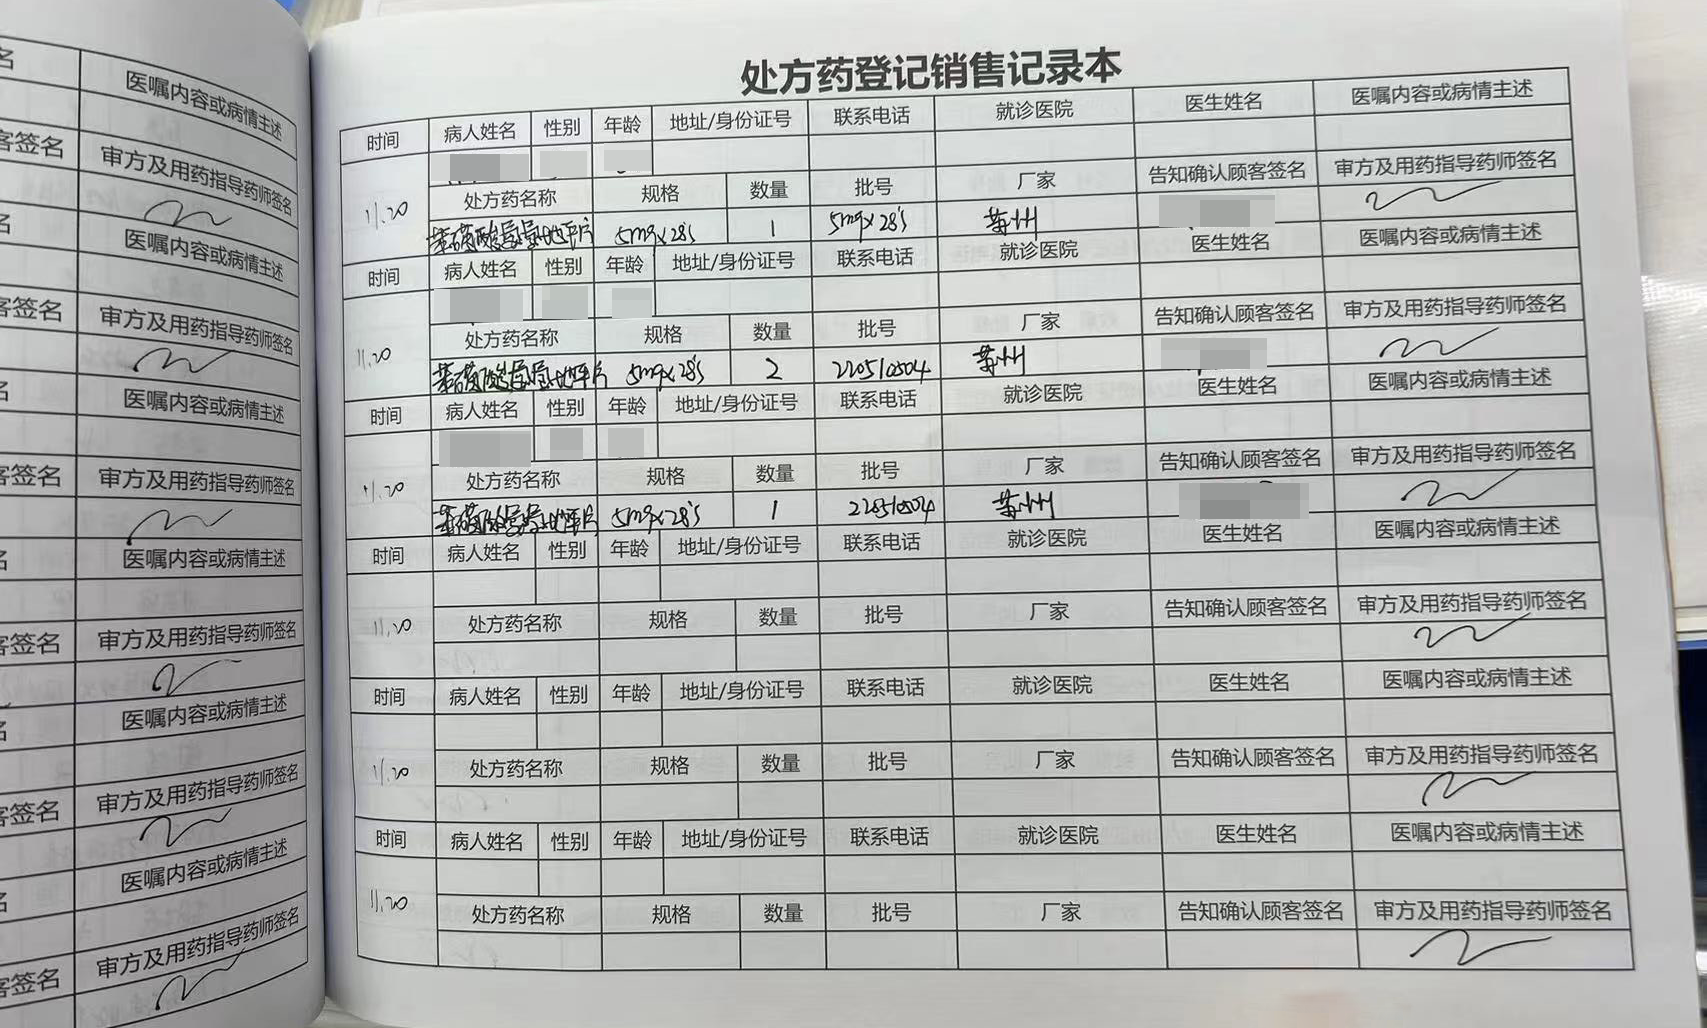 处方药登记销售记录本
时间 病人姓名 性别 年龄 地址/身份证号 联系电话 就诊医院 医生姓名 医嘱内容或病情主述
11.20 处方药名称 规格 数量 批号 厂家 告知确认顾客签名 审方及用药指导药师签名
苯磺酸氨氯地平片 5mg×28's 1 5mg×28's 苏州
时间 病人姓名 性别 年龄 地址/身份证号 联系电话 就诊医院 医生姓名 医嘱内容或病情主述
11.20 处方药名称 规格 数量 批号 厂家 告知确认顾客签名 审方及用药指导药师签名
5mg×28's 2 220510504 苏州
时间 病人姓名 性别 年龄 地址/身份证号 联系电话 就诊医院 医生姓名 医嘱内容或病情主述
11.20 处方药名称 规格 数量 批号 厂家 告知确认顾客签名 审方及用药指导药师签名
5mg×28's 1 220510504 苏州
时间 病人姓名 性别 年龄 地址/身份证号 联系电话 就诊医院 医生姓名 医嘱内容或病情主述
11.20 处方药名称 规格 数量 批号 厂家 告知确认顾客签名 审方及用药指导药师签名
时间 病人姓名 性别 年龄 地址/身份证号 联系电话 就诊医院 医生姓名 医嘱内容或病情主述
11.20 处方药名称 规格 数量 批号 厂家 告知确认顾客签名 审方及用药指导药师签名
时间 病人姓名 性别 年龄 地址/身份证号 联系电话 就诊医院 医生姓名 医嘱内容或病情主述
11.20 处方药名称 规格 数量 批号 厂家 告知确认顾客签名 审方及用药指导药师签名
名 医嘱内容或病情主述
客签名 审方及用药指导药师签名
名 医嘱内容或病情主述
客签名 审方及用药指导药师签名
名 医嘱内容或病情主述
客签名 审方及用药指导药师签名
名 医嘱内容或病情主述
客签名 审方及用药指导药师签名
名 医嘱内容或病情主述
客签名 审方及用药指导药师签名
名 医嘱内容或病情主述
客签名 审方及用药指导药师签名